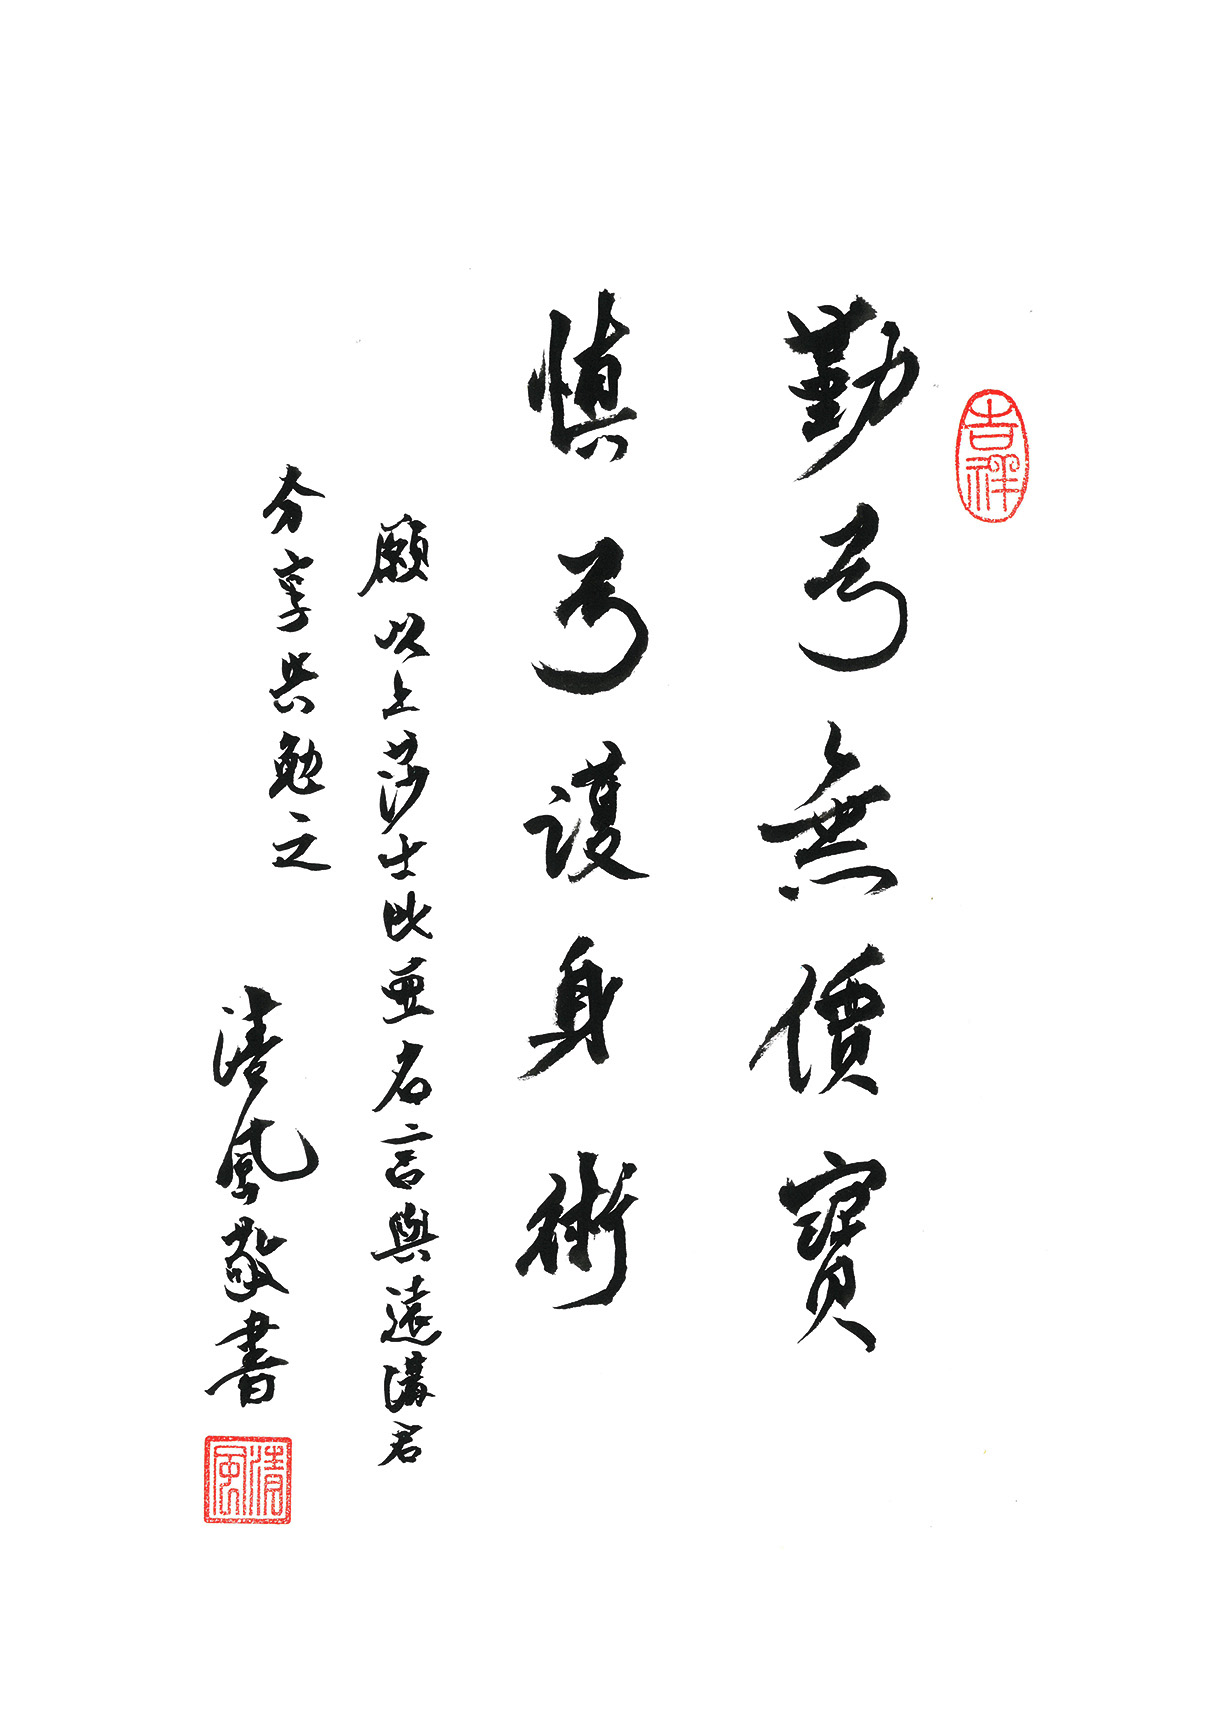 吉祥
勤乃無價寶
慎乃護身術
願以上莎士比亞名言與遠溝君
分享共勉之
清風敬書
清風